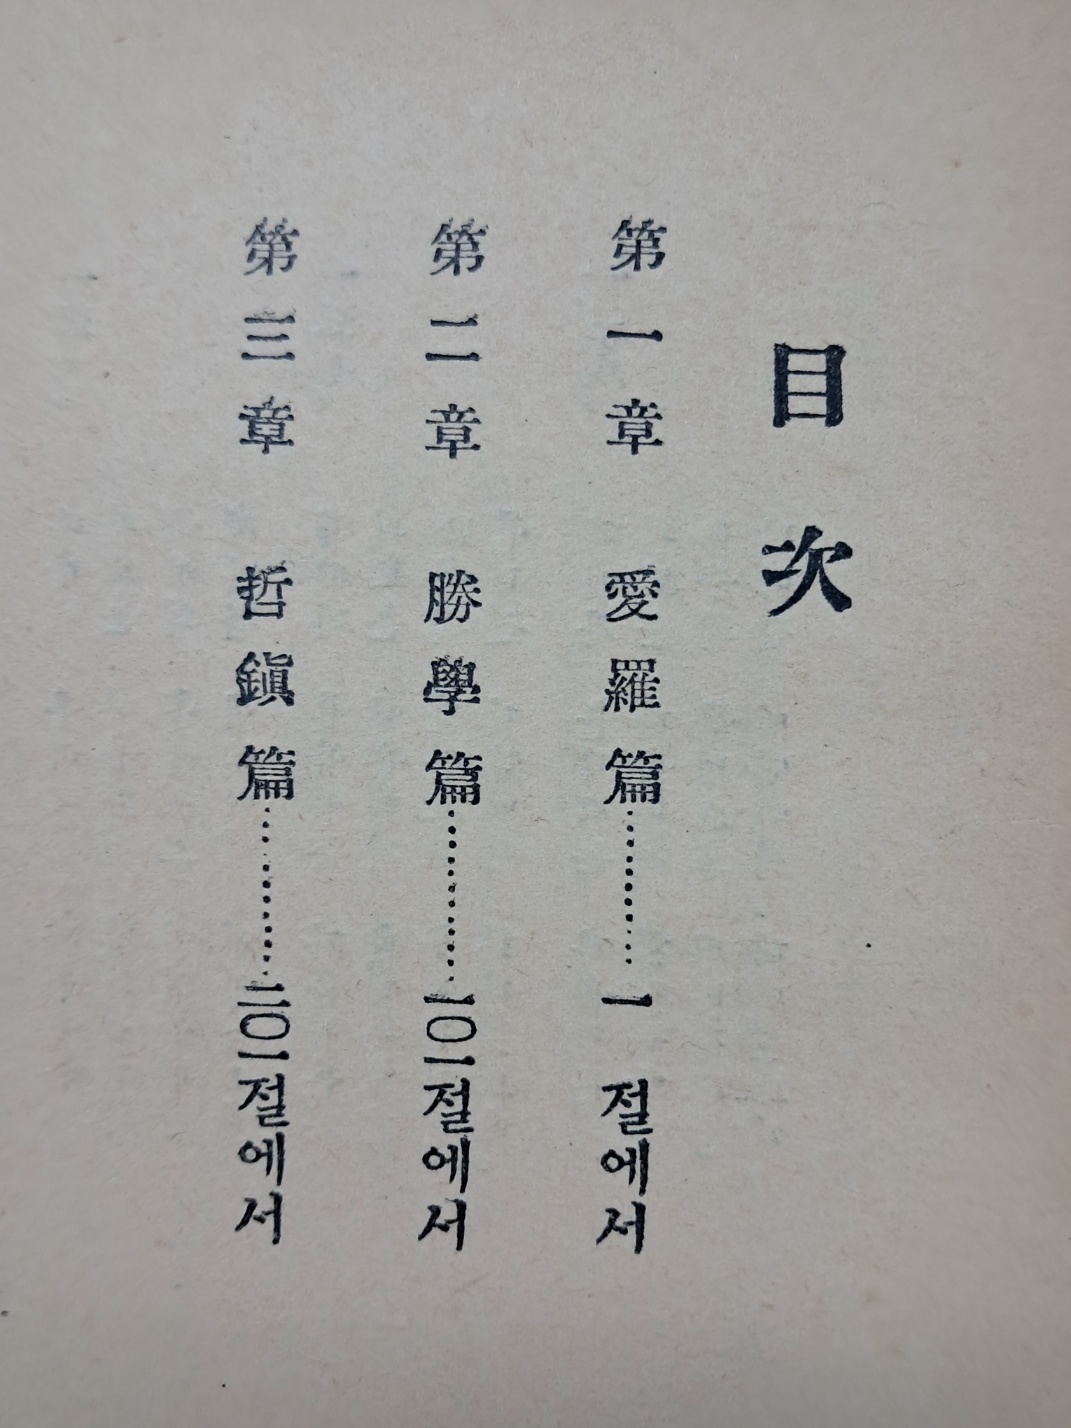 目次
第一章 愛羅篇…………一 절에서
第二章 勝學篇…………一〇一절에서
第三章 哲鎭篇…………二〇一절에서